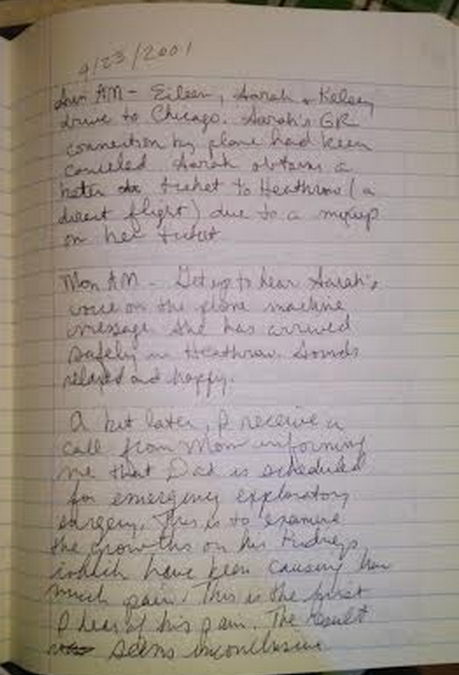 4/23/2001
Sun AM - Eileen, Sarah & Kelsey
drive to Chicago. Sarah's GR
connection by plane had been
canceled Sarah obtains a
better ticket to Heathrow (a
direct flight) due to a mixup
on her ticket
Mon AM - Get up to hear Sarah's
voice on the phone machine
message she has arrived
safely in Heathrow. Sounds
relaxed and happy.
A bit later, I receive a
call from Mom informing
me that Dad is scheduled
for emergency exploratory
surgery. This is to examine
the growths on his kidneys
which have been causing him
much pain. This is the first
I hear of his pain. The result
seems inconclusive